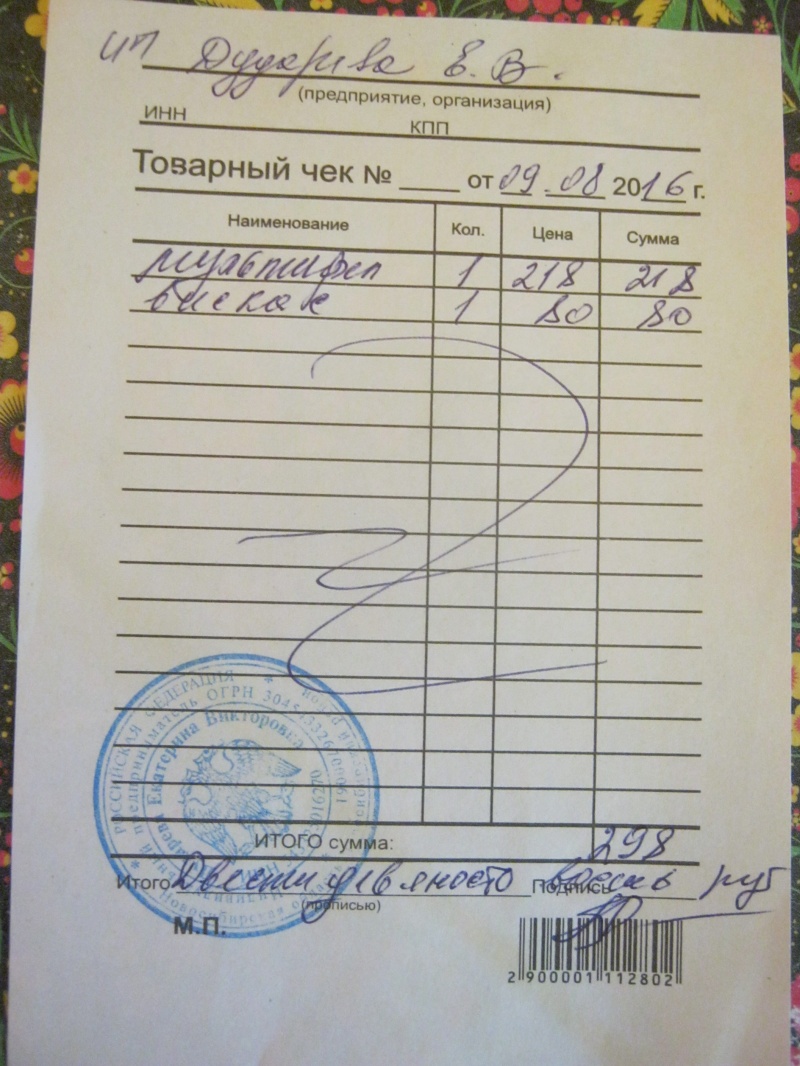 ИП Дударева Е. В.
(предприятие, организация)
ИНН КПП
Товарный чек № ____ от 09.08 2016 г.
Наименование Кол. Цена Сумма
мультифел 1 218 218
вискас 1 80 80
РОССИЙСКАЯ ФЕДЕРАЦИЯ
ОГРН
Екатерина Викторовна
Новосибирская
ИТОГО сумма: 298
Итого Двести девяносто восемь руб
(прописью)
Подпись
М.П.
2 900001 112802